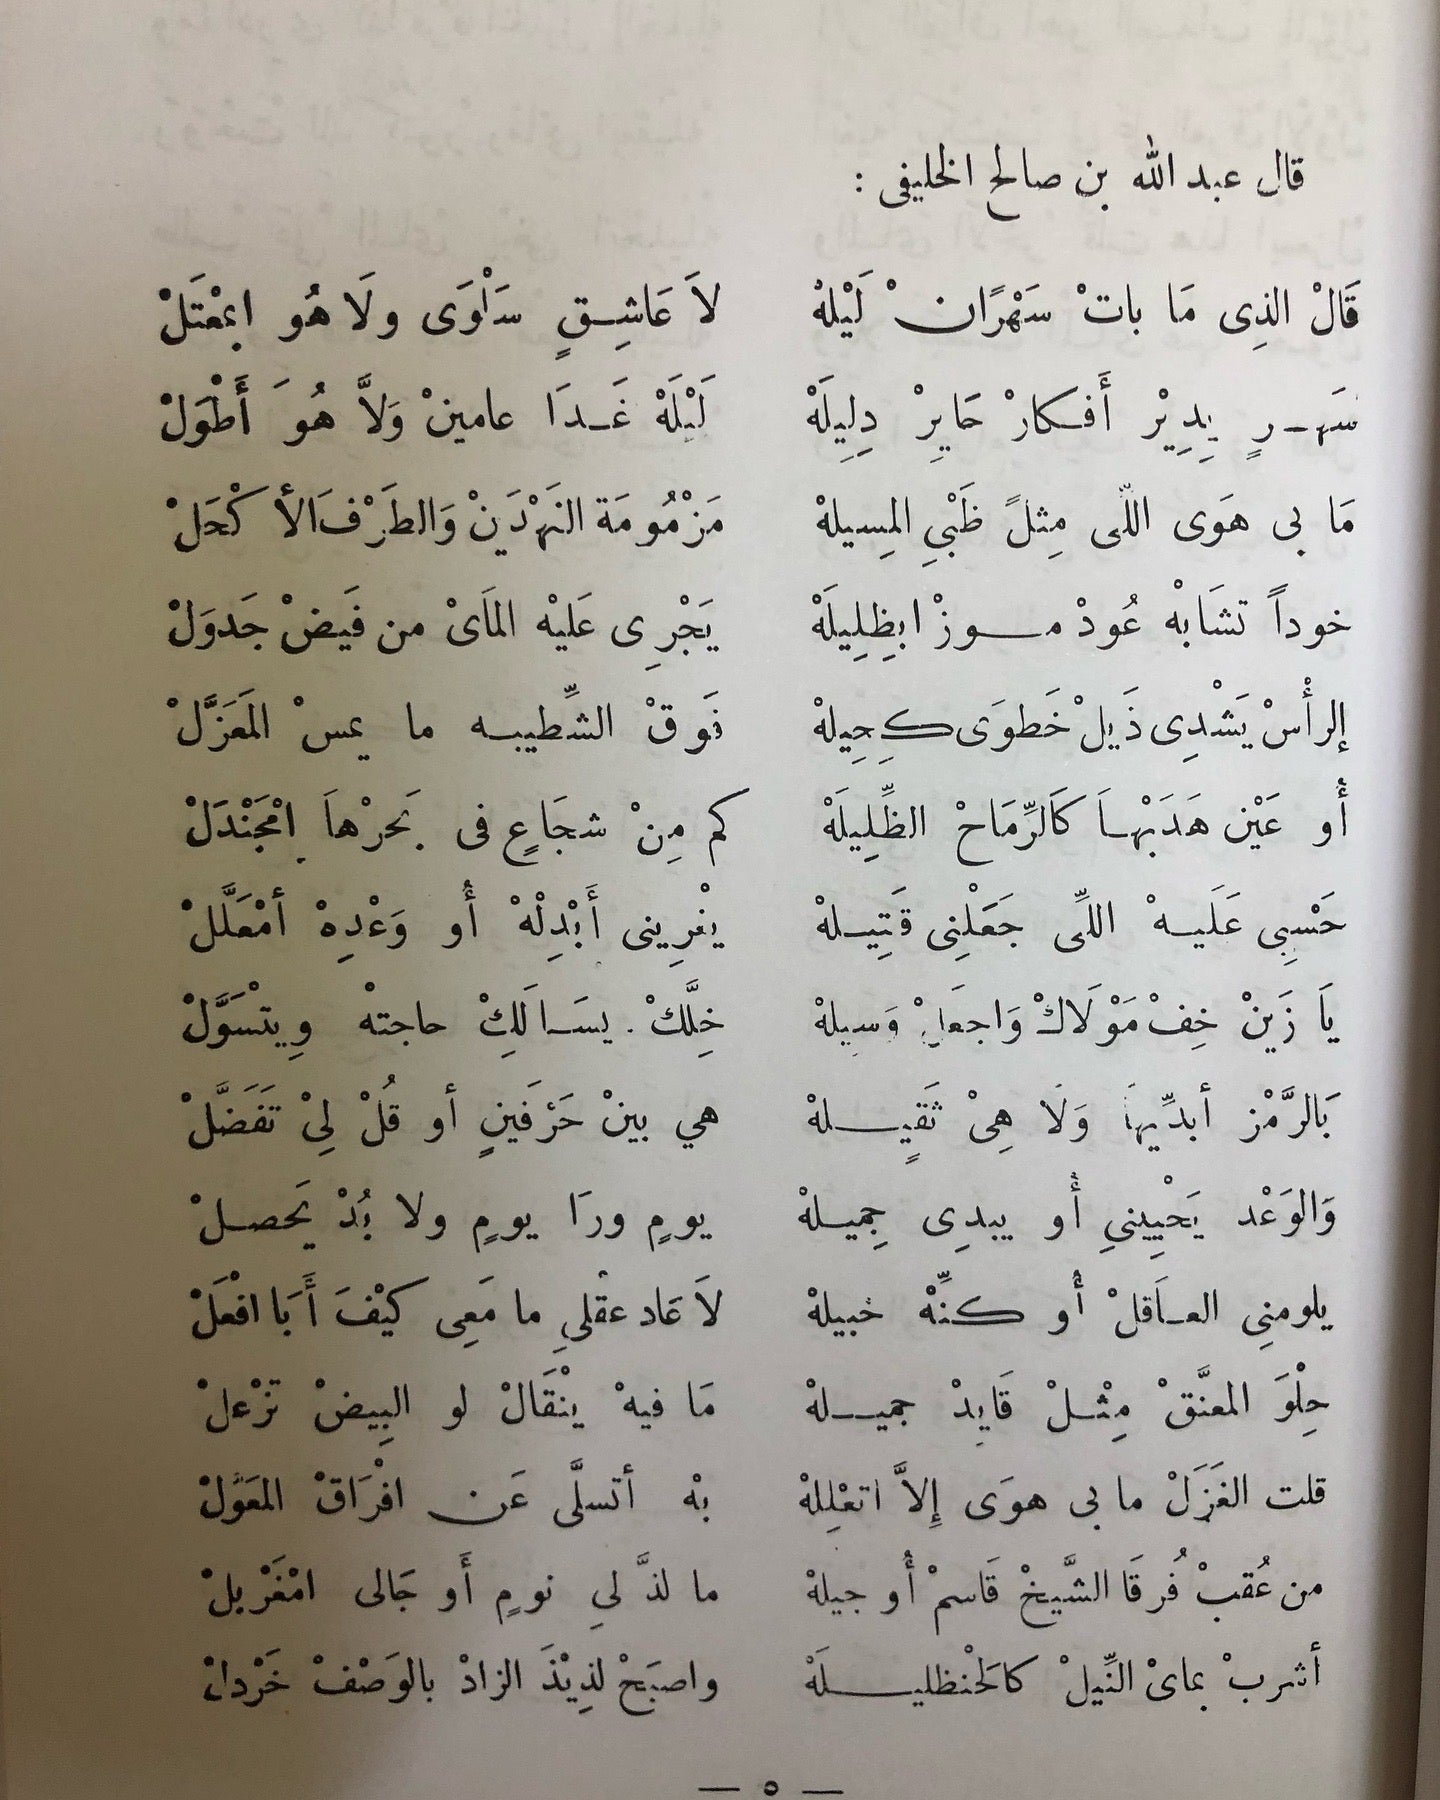 قال عبد الله بن صالح الخليفى :
قَالْ الذِى مَا باتْ سَهْرَانْ لَيْلهْ لاَ عَاشِقٍ سَلْوَى ولَا هُو ابمعْتَلْ
سَهـرٍ يِدِيْر أَفـكارْ حَايرْ دِلِيلَهْ لَيْلَهْ غَـدَا عامينْ وَلاَّ هُو أَطْوَلْ
مَا بى هَوَى اللّى مِثلْ ظَبْيِ المِسيلهْ مَزْمُومَة النَهْدَينْ وَالطَرْف الأكْحَلْ
خوداً تشَابهْ عُودْ مـوزْ ابظِلِيلَهْ يَجْرِى عَليْه المَاىْ من فَيضْ جَدوَلْ
إلرأْسْ يَشْدِى ذَيلْ خَطوَى كحِيلهْ فَوقْ الشِّطيبه ما يمسْ المَعَزَّلْ
أُو عَيْن هَدَبْهـاَ كَالرِّمَاحْ الظِّلِيلَهْ كم مِنْ شجَاعٍ فى بَحرْهاَ امْجَنْدَلْ
حَسْبِى عَلَيـهْ اللِّى جَعَلْنِى قَتِيـلهْ يغْرِينى أَبْدِلْهْ أُو وَعْدِهْ أمْعَلَّلْ
يَا زَينْ خِفْ مَوْلَاكْ وَاجعَلْ وَسِيلهْ خِلَّكْ يسَالَكِْ حاجتهْ وِيتْسَوَّلْ
بَالرَّمْز أبدِّيها وَلَا هِىْ ثَقِيـلهْ هي بينْ حَرْفَينٍ أو قُلْ لِىْ تَفَضَّلْ
وَالوَعْد يَحْيِينيِ أُو يبدِى جِميـلهْ يومٍ ورَا يومٍ ولا بُدْ يَحصـلْ
يلومنِى العـاَقلْ أُو كنِّهْ خبيلهْ لاَ عَاد عقلِي ما مَعِى كيْفَ أَبَا افعَلْ
حِلْوَ المعنَّقْ مِثْـلْ قَايدْ جميـلهْ مَا فيهْ ينْقَالْ لو البِيضْ تزْعلْ
قلت الغَزَلْ ما بى هوَى إِلاَّ اتعْلِلهْ بهْ أتسلَّى عَن افْرَاقْ المعَوَّلْ
من عُقبْ فُرقَا الشَّيخْ قَاسمْ أُو جيلهْ ما لذَّ لي نومٍ أَو جَالى امْغَرْبلْ
أشربْ بماىْ النِّيلْ كالحْنظليـلَهْ واصبَحْ لذِيْذَ الزادْ بالوَصْفْ خَرْدلْ
— ٥ —